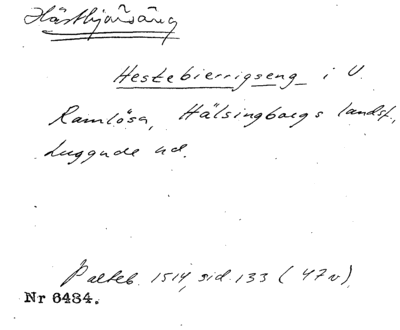 Hästhjärsäng
Hestebierrigseng i V.
Ramlösa, Hälsingborgs landsf.,
Luggude hd.
Palteb. 1514, sid. 133 (47v)
Nr 6484.